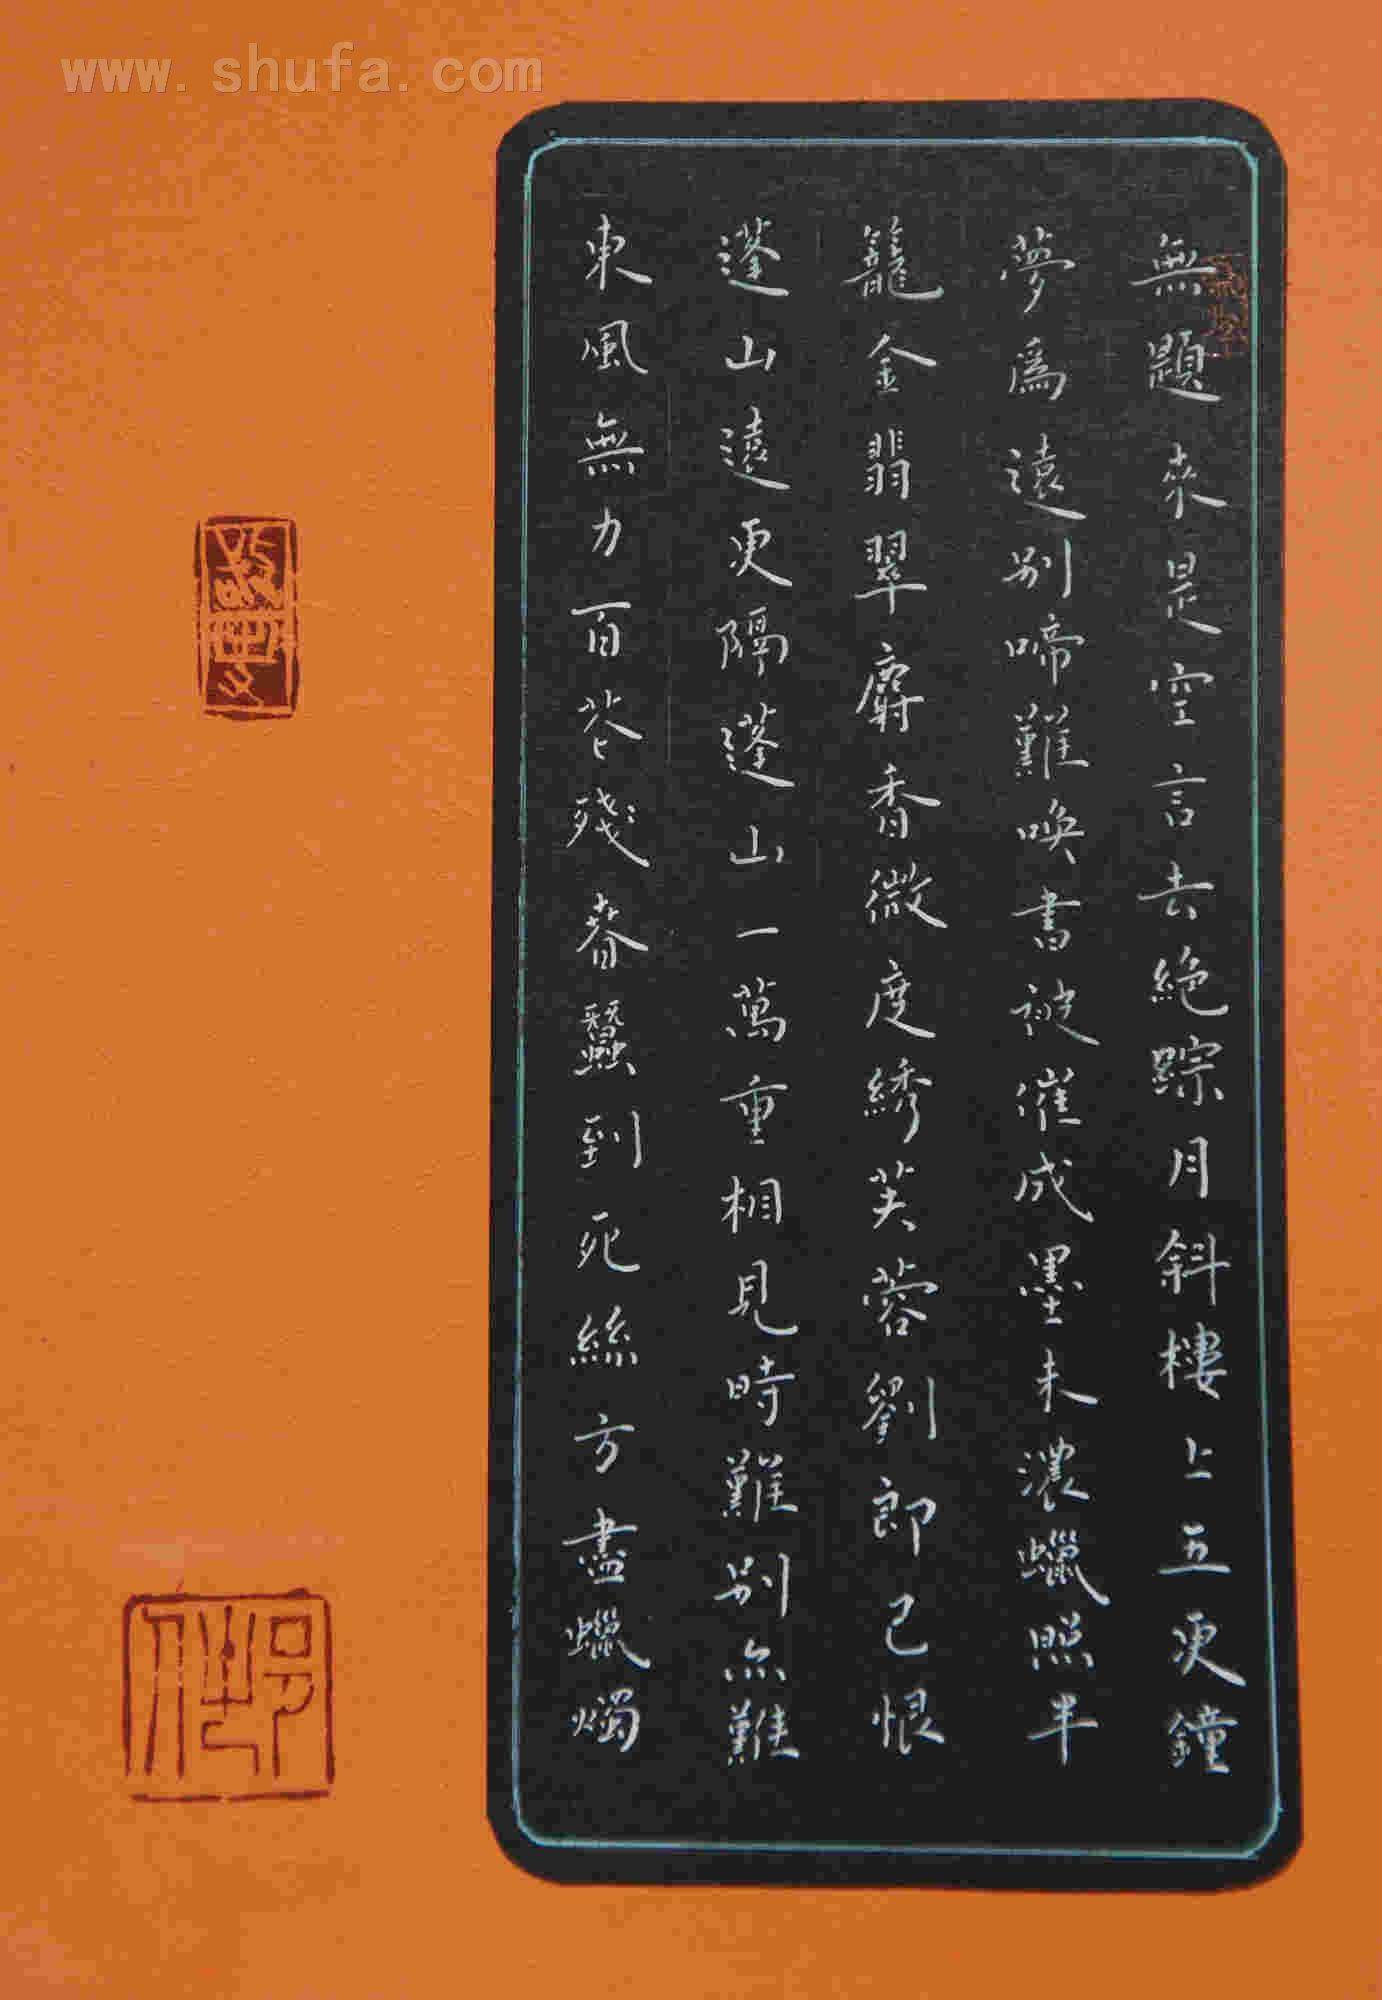 www.shufa.com
無題來是空言去絶踪月斜樓上五更鐘
夢為遠別啼難喚書被催成墨未濃蠟照半
籠金翡翠麝香微度綉芙蓉劉郎已恨
蓬山遠更隔蓬山一萬重相見時難別亦難
東風無力百花殘春蠶到死絲方盡蠟燭